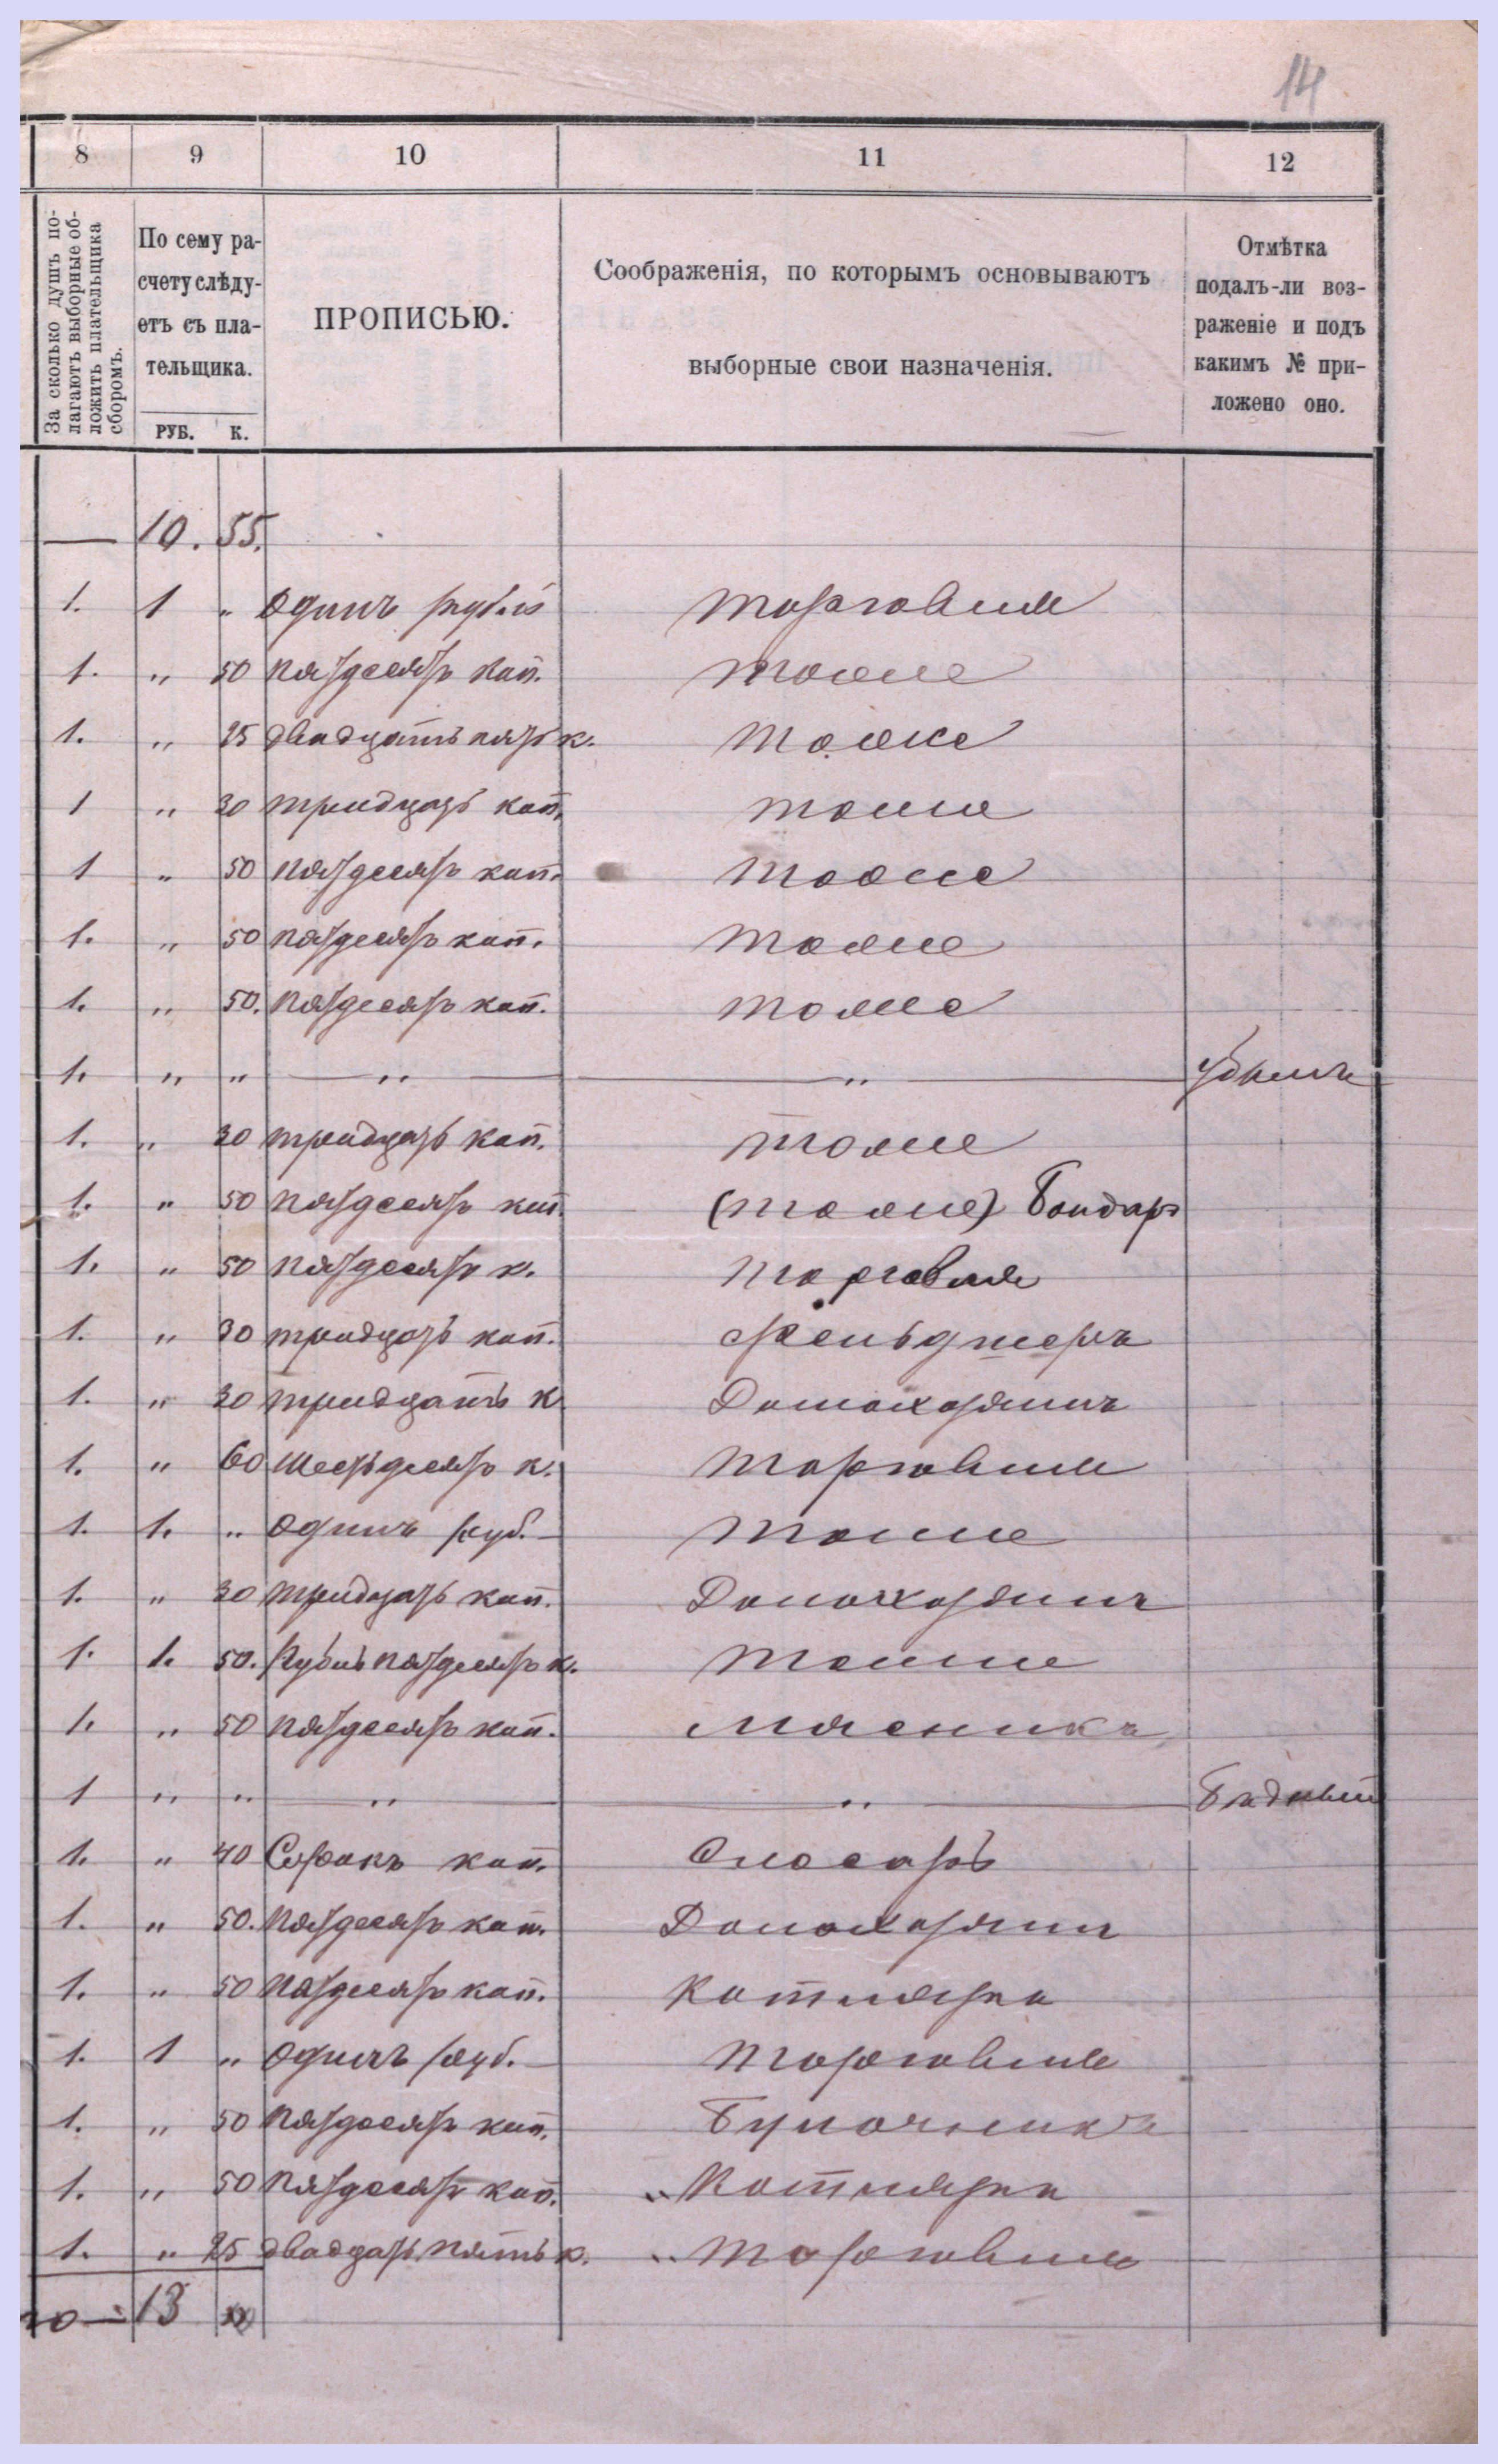 14
8 9 10 11 12
За сколько душъ по-
лагаютъ выборные об-
ложить плательщика
сборомъ.
По сему ра-
счету слѣду-
етъ съ пла-
тельщика.
РУБ. К.
ПРОПИСЬЮ.
Соображенія, по которымъ основываютъ
выборные свои назначенія.
Отмѣтка
подалъ-ли воз-
раженіе и подъ
какимъ № при-
ложено оно.
— 10. 55.
1. 1 " Одинъ рубль торговля
1. " 50 пятдесятъ коп. тоже
1. " 25 двадцать пять к. тоже
1 " 30 тридцать коп. тоже
1 " 50 пятдесятъ коп. тоже
1. " 50 пятдесятъ коп. тоже
1. " 50. пятдесятъ коп. тоже
1. " " — " — — " —
1. " 30 тридцать коп. тоже
1. " 50 пятдесятъ коп. (тоже) Бондарь
1. " 50 пятдесятъ к. торговля
1. " 30 тридцать коп. фельдшеръ
1. " 30 тридцать к Домохозяинъ
1. " 60 шестьдесятъ к. торговля
1. 1. " Одинъ руб. — тоже
1. " 30 тридцать коп. Домохозяинъ
1. 1. 50. Рубль пятдесятъ к. тоже
1. " 50 пятдесятъ коп. Мясникъ
1 " " — " — — " — Бѣдный
1. " 40 Сорокъ коп. Слосарь
1. " 50. пятдесятъ коп. Домохозяинъ
1. " 50 пятдесятъ коп. Котлярка
1. 1 " Одинъ руб. — торговля
1. " 50 пятдесятъ коп. Булочникъ
1. " 50 пятдесятъ коп. " Котлярка
1. " 25 двадцать пять к. " торговля
— 13